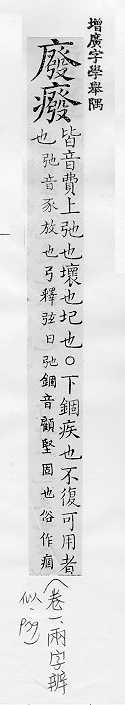 增廣字學舉隅
廢癈
皆音費上弛也壞也圮也〇下錮疾也不復可用者
也弛音豕放也弓釋弦曰弛錮音顧堅固也俗作痼
(卷一、兩字辨
似、P29)